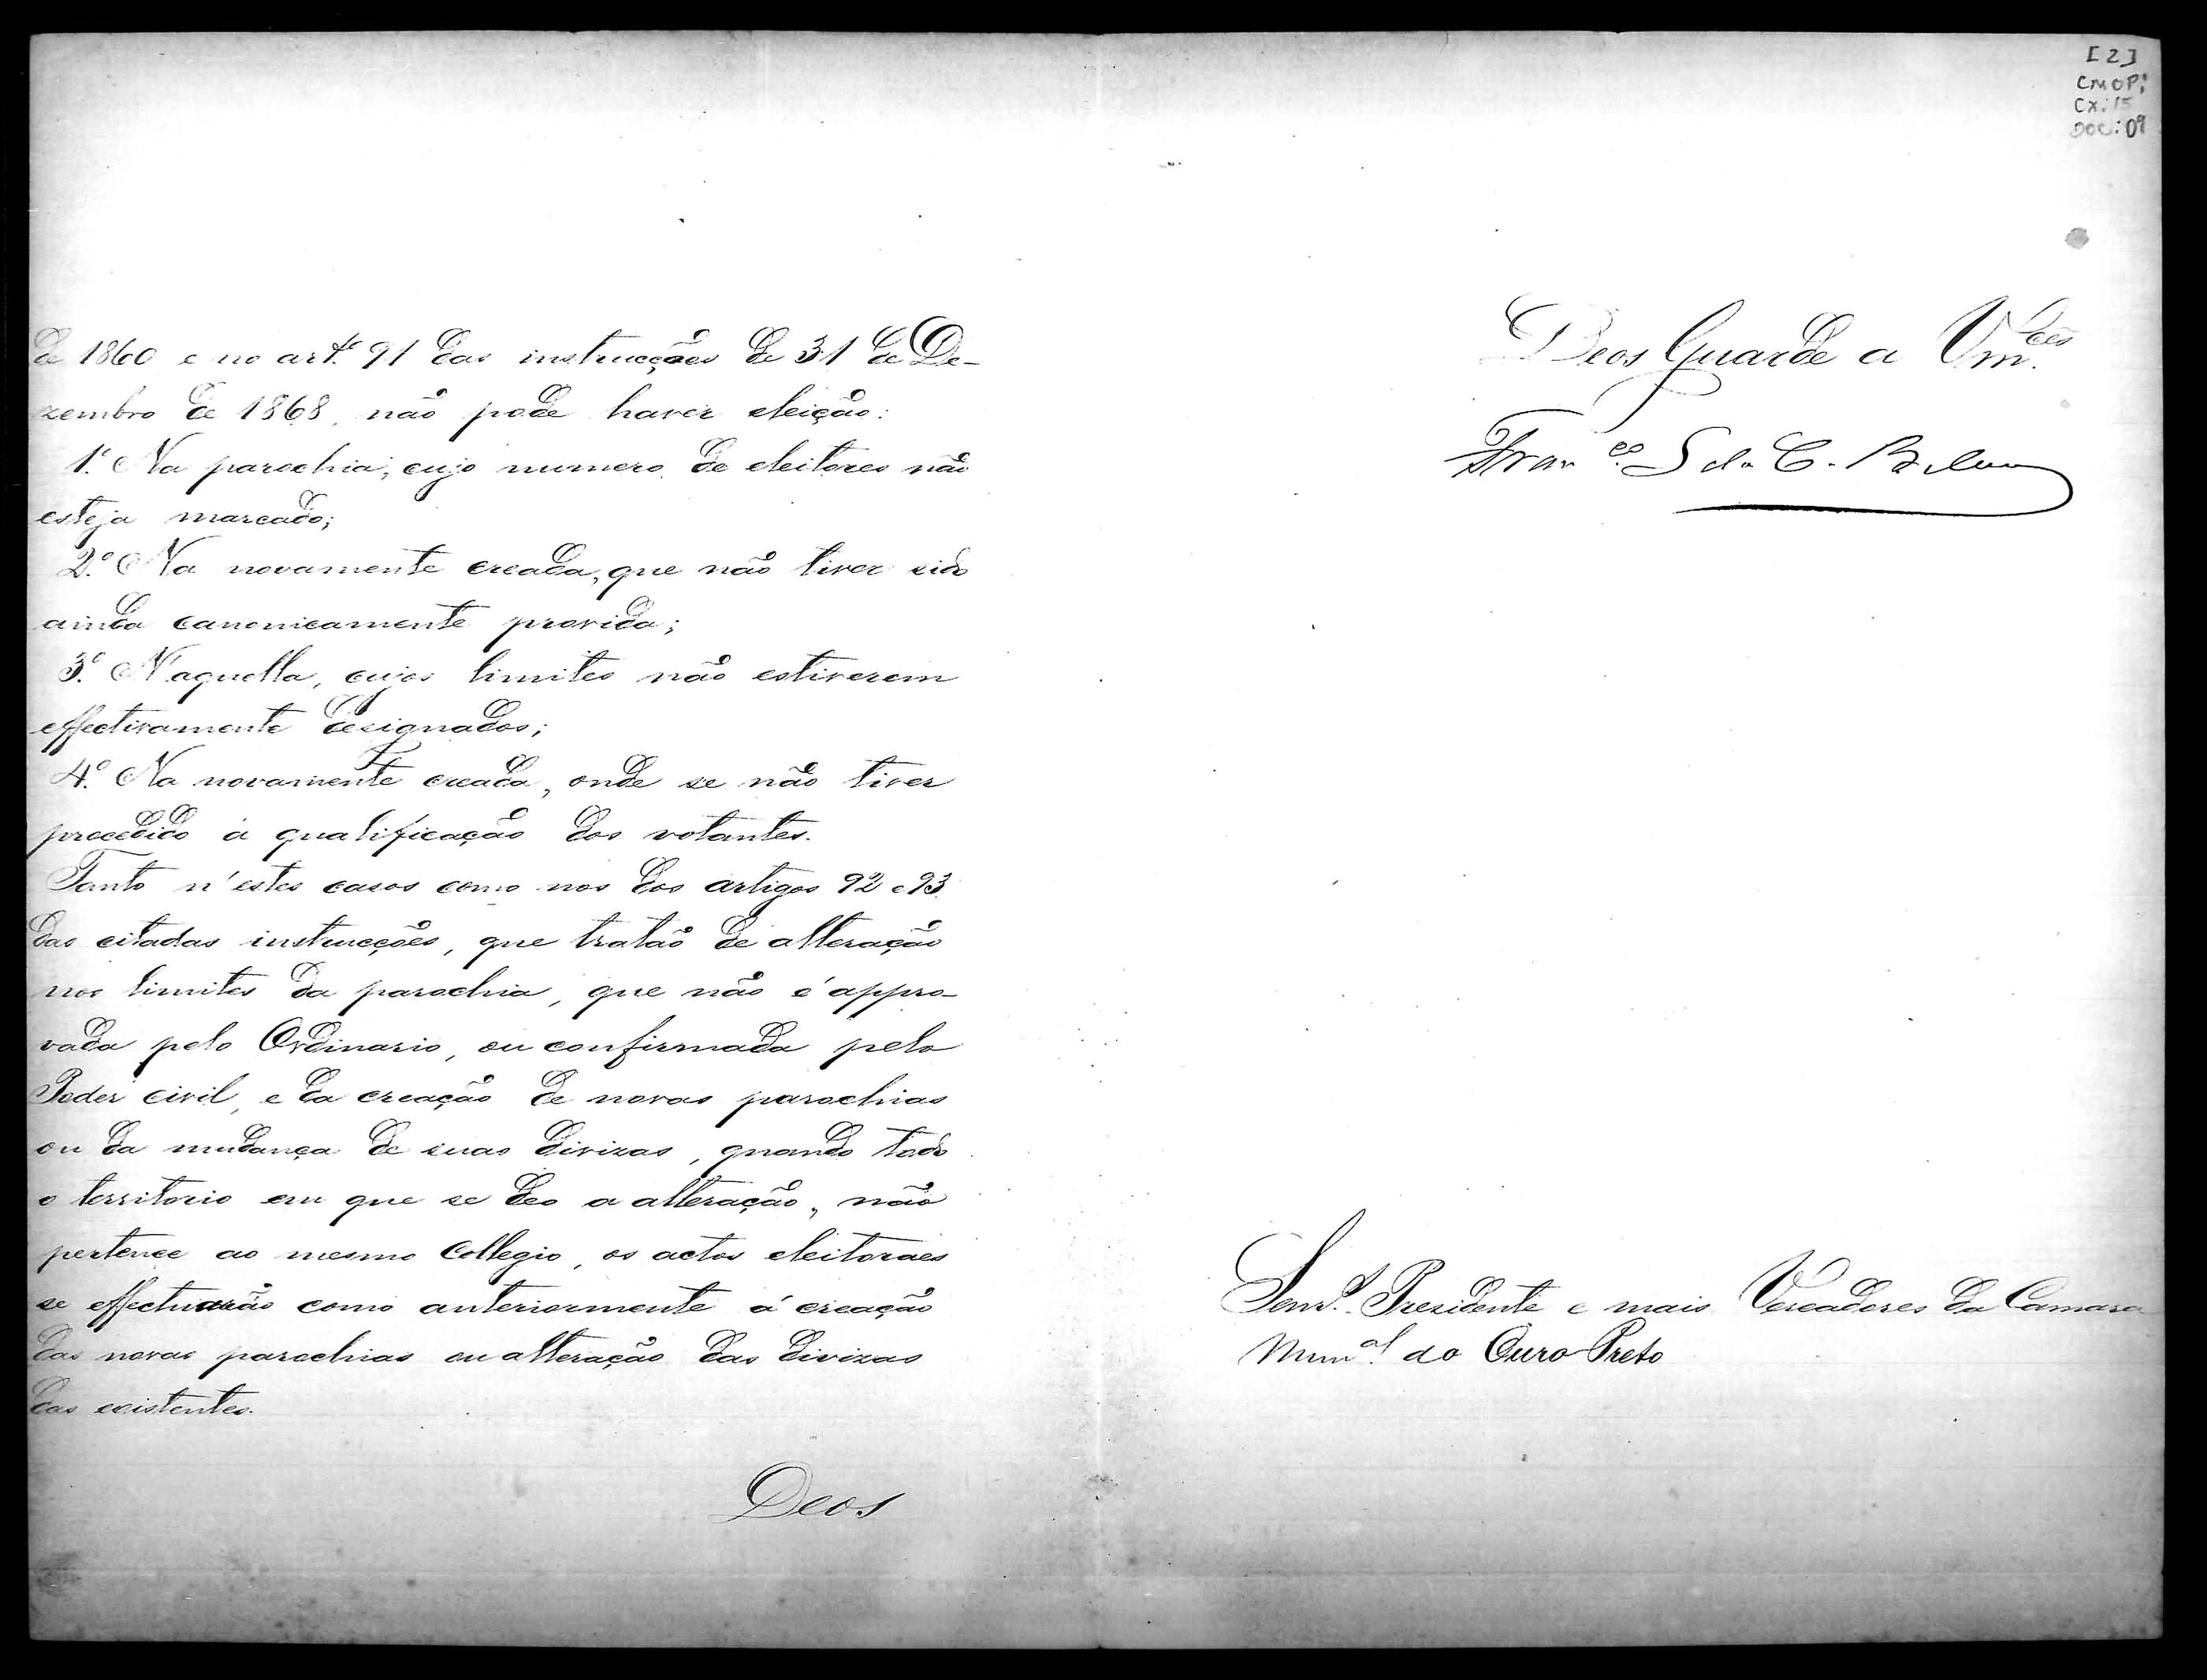 de 1860 e no art.º 91 das instrucções de 31 de De-
zembro de 1868, não póde haver eleição:
1.º Na parochia, cujo numero de eleitores não
esteja marcado;
2.º Na novamente creada, que não tiver sido
ainda canonicamente provida;
3.º N'aquella, cujos limites não estiverem
effectivamente designados;
4.º Na novamente creada, onde se não tiver
procedido á qualificação dos votantes.
Tanto n'estes casos como nos dos artigos 92 e 93
das citadas instrucções, que tratão de alteração
nos limites da parochia, que não é appro-
vada pelo Ordinario, ou confirmada pelo
Poder civil, e da creação de novas parochias
ou da mudança de suas divizas, quando todo
o territorio em que se deo a alteração, não
pertence ao mesmo Collegio, os actos eleitoraes
se effectuarão como anteriormente á creação
das novas parochias ou alteração das divizas
das existentes.
Deos
[2]
CMOP:
CX: 15
DOC: 09
Deos Guarde a Vm.ces
Fran.co S da C. Belem
Senr.s Presidente e mais Vereadores da Camara
Mun.al do Ouro Preto